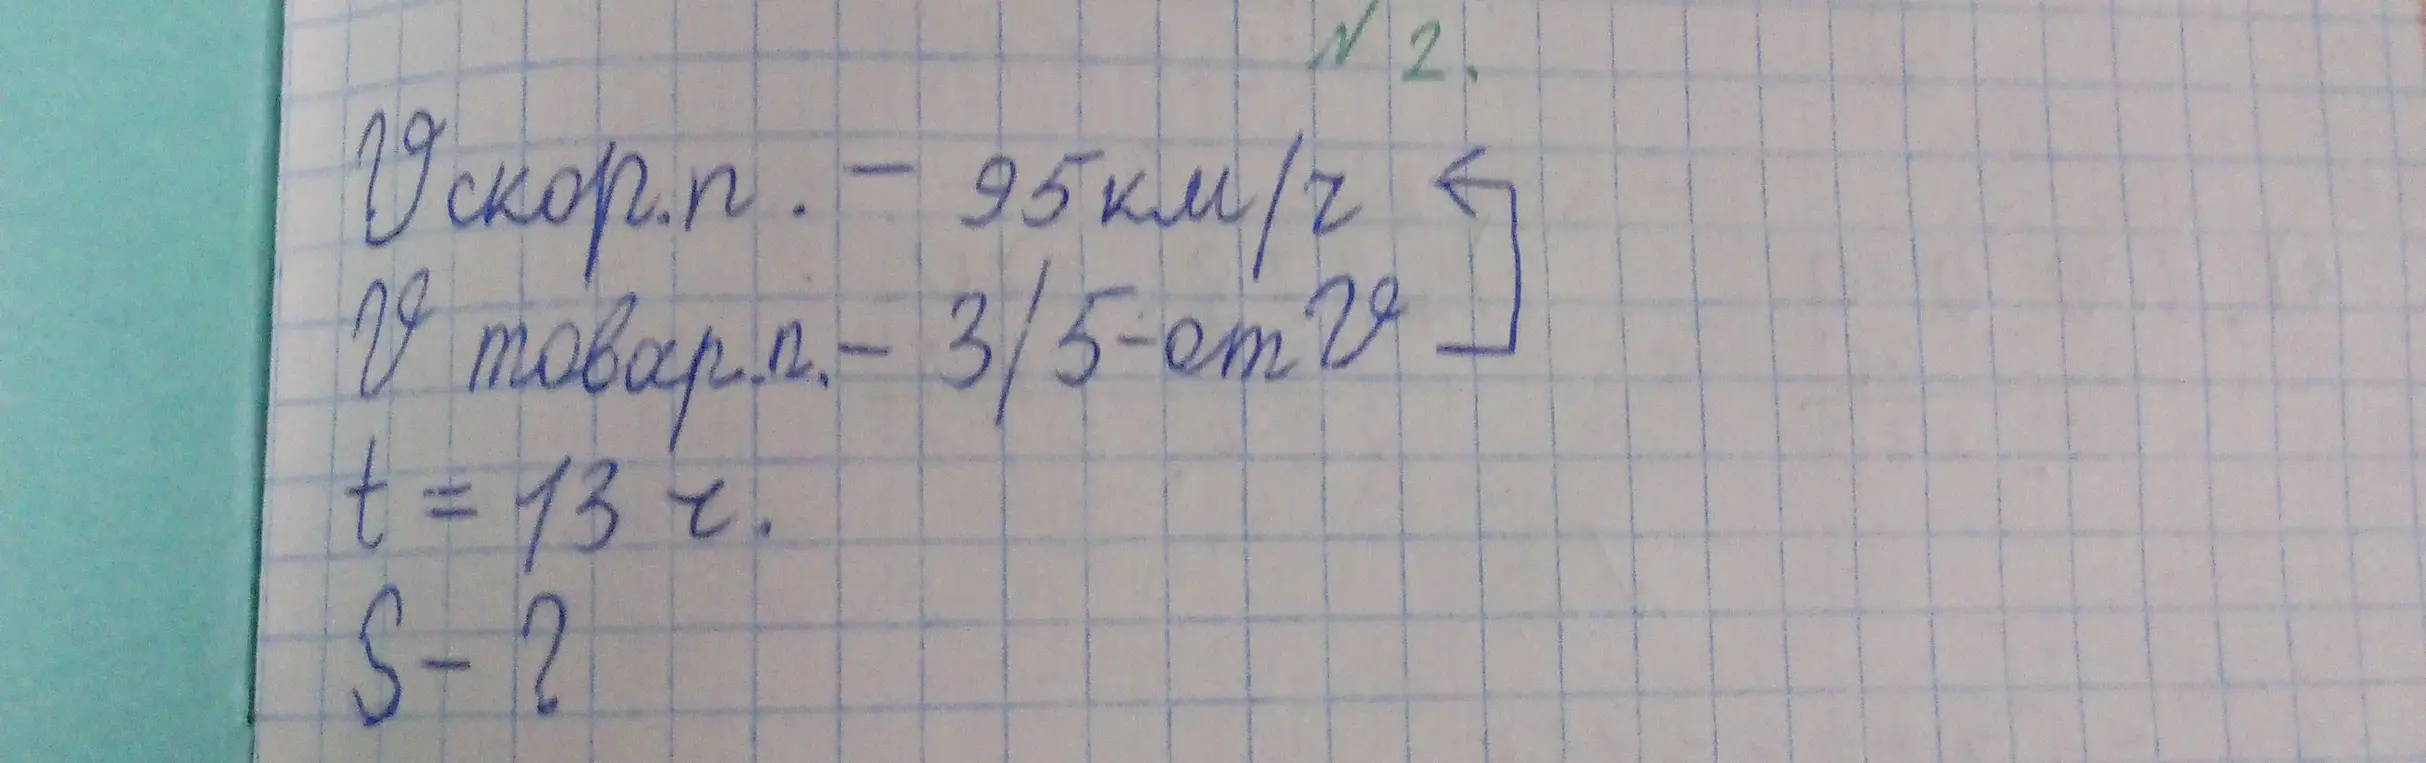 № 2.
V скор.п. – 95 км/ч
V товар.п. – 3/5 – от V
t = 13 ч.
S – ?